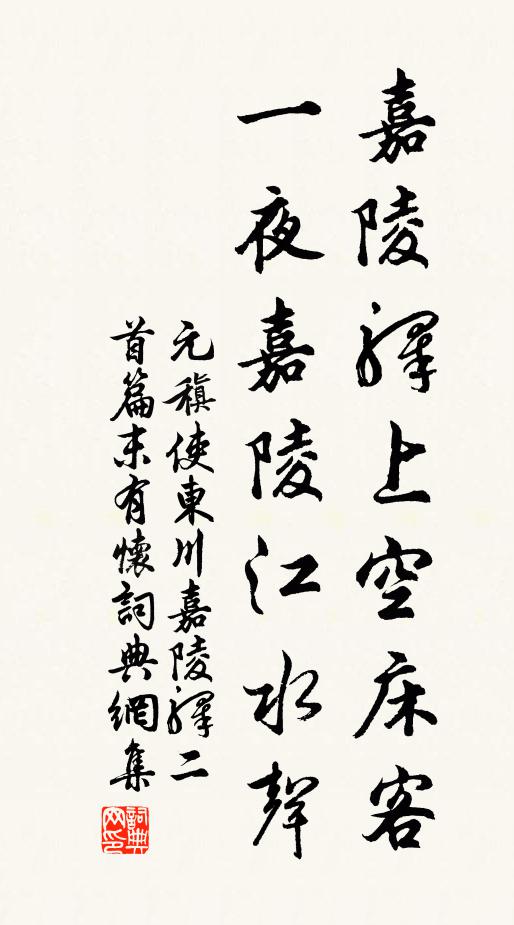 嘉陵驛上空床客
一夜嘉陵江水聲
元稹使東川嘉陵驛二
首篇末有懷詞典網集
詞典
网印